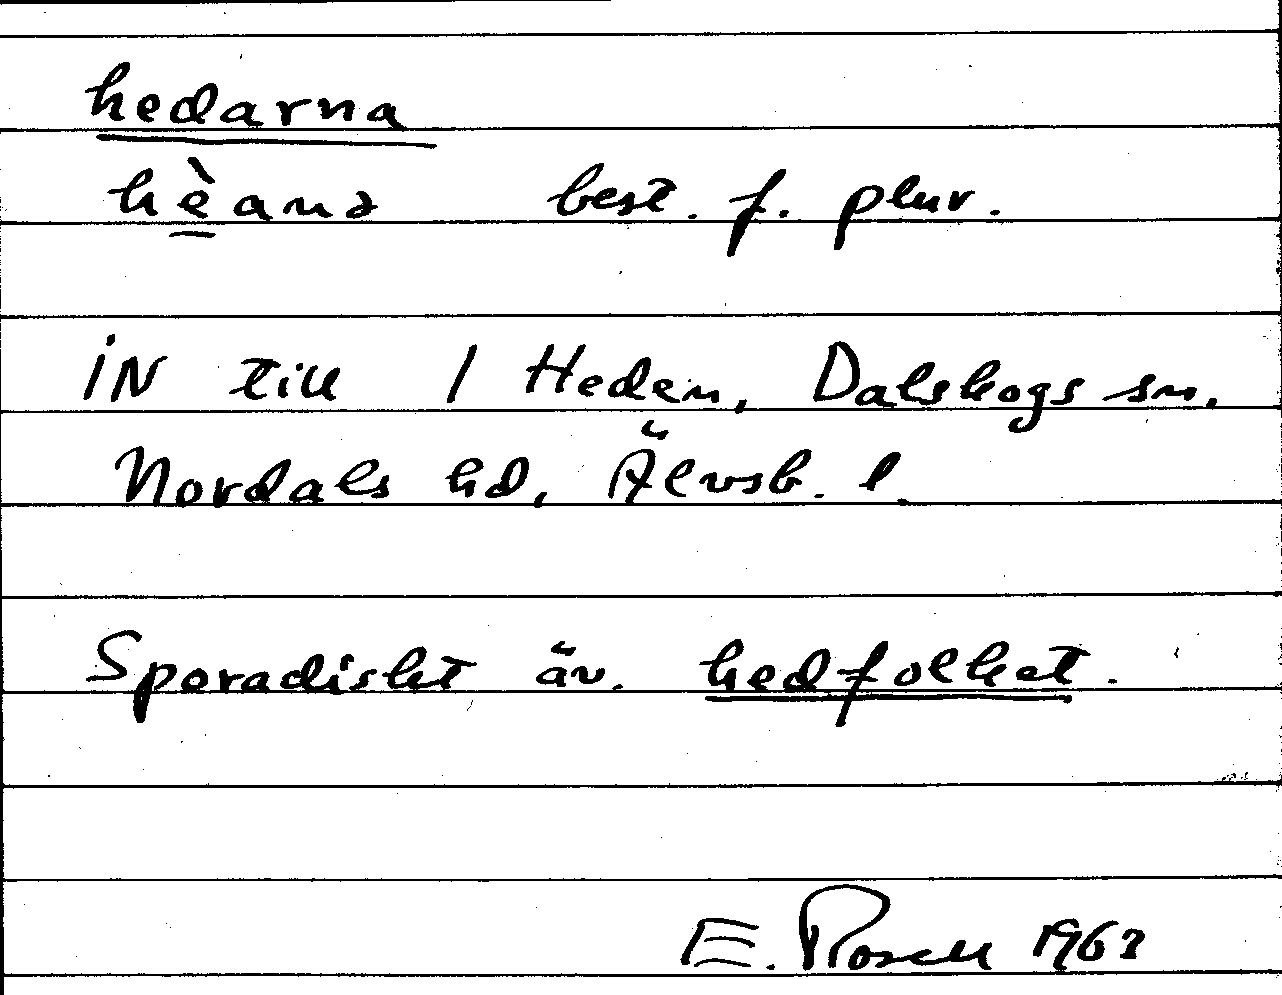 hedarna
hèanə best. f. plur.
iN till / Heden, Dalskogs sn.
Nordals hd, Älvsb. l.
Sporadiskt äv. hedfolket.
E. Rosell 1963